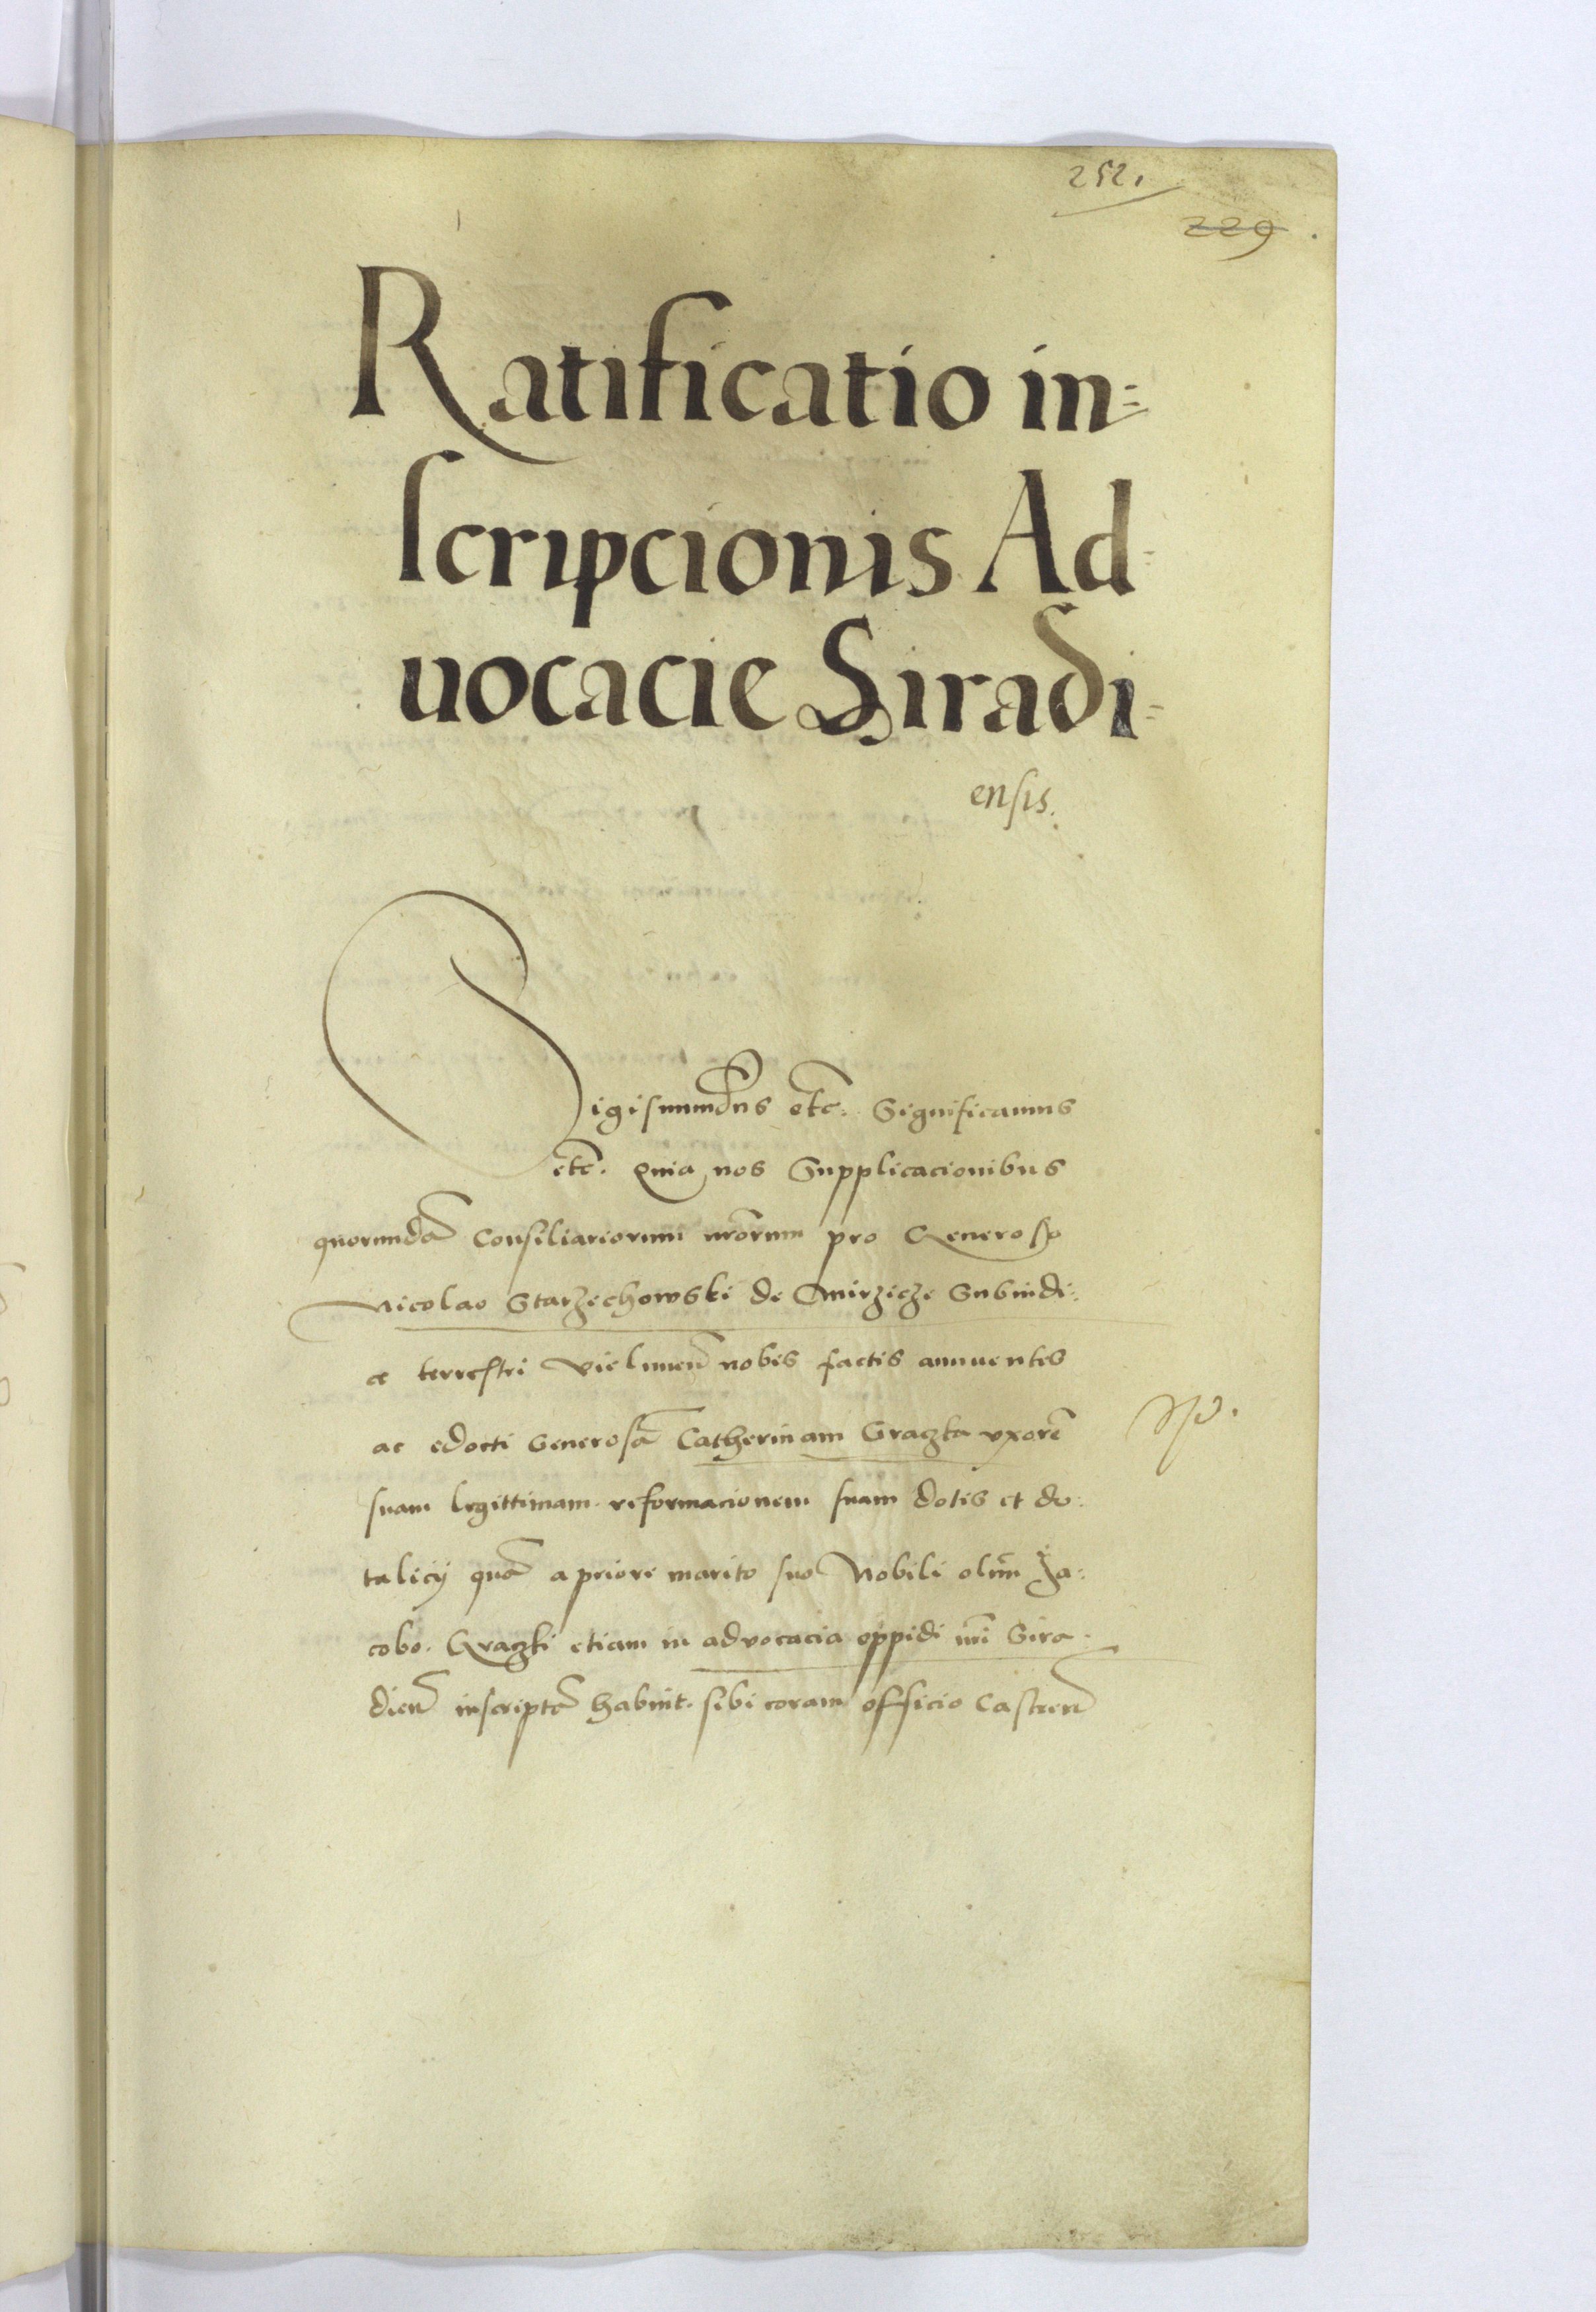 252.
229
Ratificatio in=
scripcionis Ad=
uocacie Siradi=
ensis.
Sigismundus etc. Significamus
etc. Quia nos Supplicacionibus
quorundã Consiliariorum nrõrum pro Generoso
Nicolao Starzechowski de Mirzicze Subiudi:
ce terrestri Vielunen̄ nobis factis annuentes
ac edocti Generosã Catherinam Graczka vxorẽ
suam legittimam reformacionem suam dotis et do:
talicij quã a priore marito suo Nobili olim Ja:
cobo. Graczki etiam in advocacia oppidi nr̃i Sira-
dien̄ inscriptã habuit. sibi coram officio Castren̄